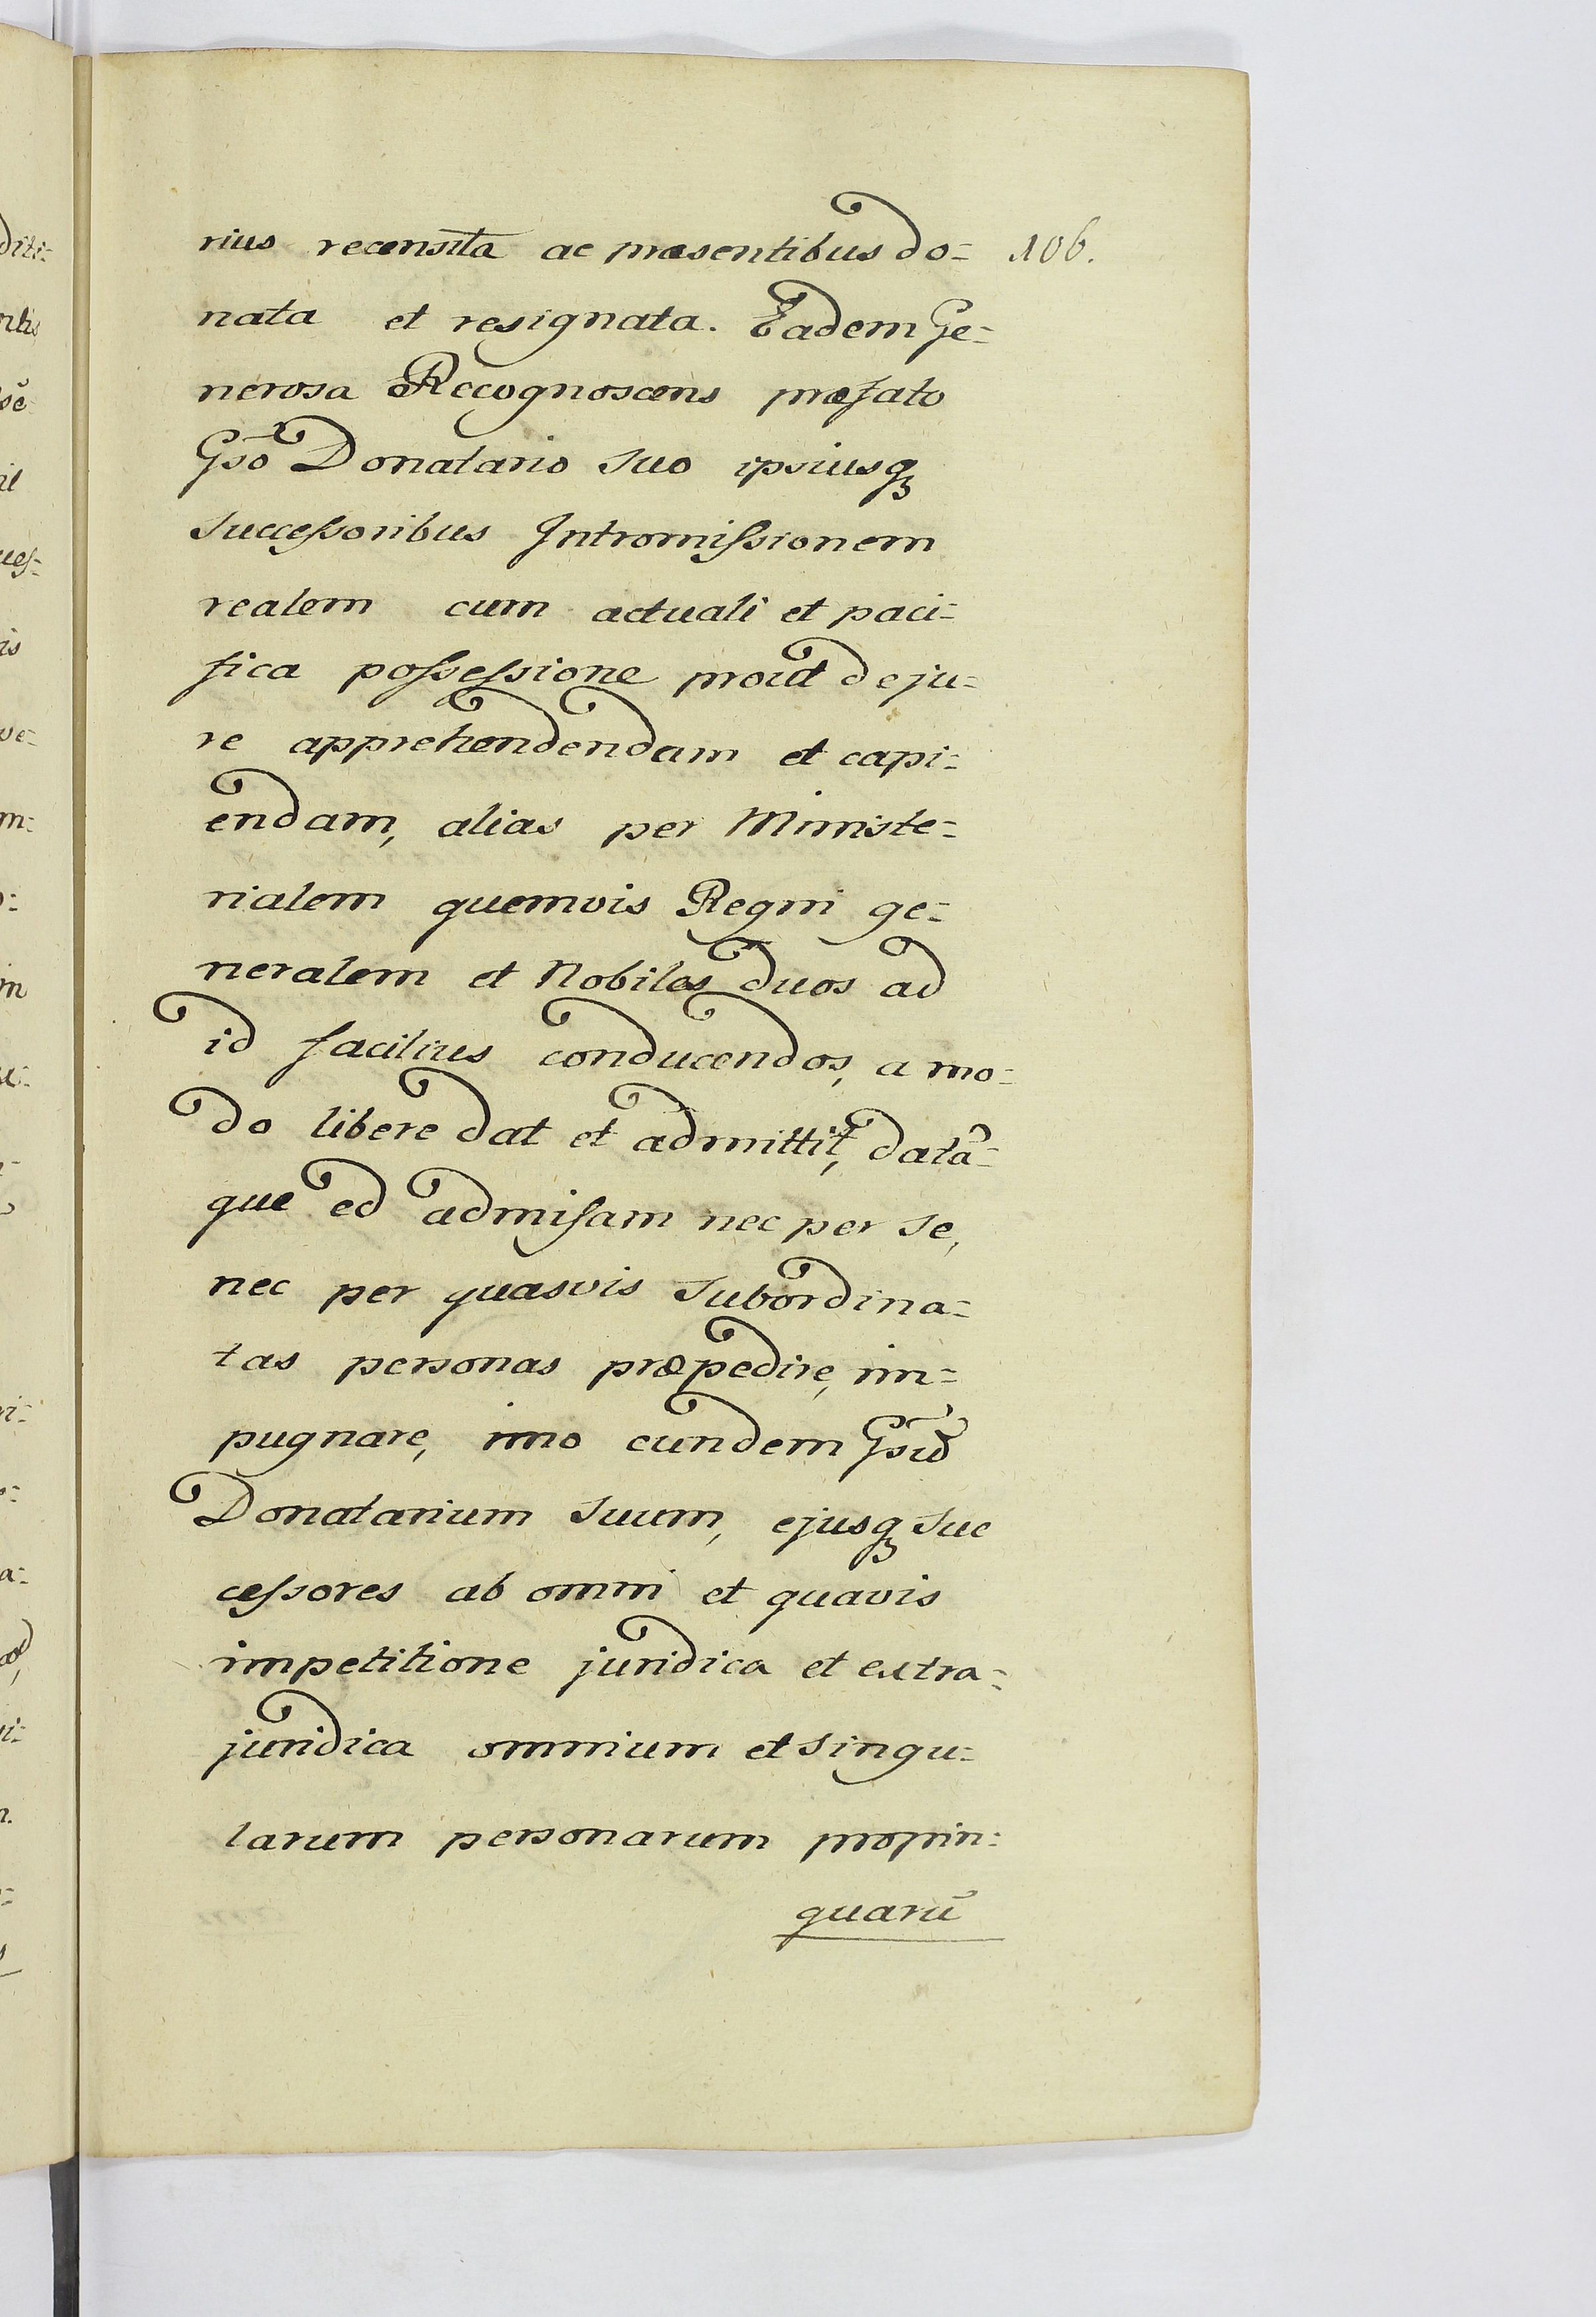 rius recensita ac præsentibus do= 106.
nata et resignata. Eadem Ge=
nerosa Recognoscens præfato
Gsō Donatario suo ipsiusq3
successoribus Intromissionem
realem cum actuali et paci=
fica possessione prout de ju=
re apprehendendam et capi=
endam, alias per Ministe=
rialem quemvis Regni ge=
neralem et Nobiles duos ad
id facilius conducendos, a mo=
do libere dat et admittit, datā=
que ed admisam nec per se,
nec per quasvis subordina=
tas personas præpedire, im=
pugnare, imo eundem Gsū
Donatarium suum, ejusq3 suc
cessores ab omni et quavis
impetitione juridica et extra=
juridica omnium et singu=
larum personarum propin=
quarū